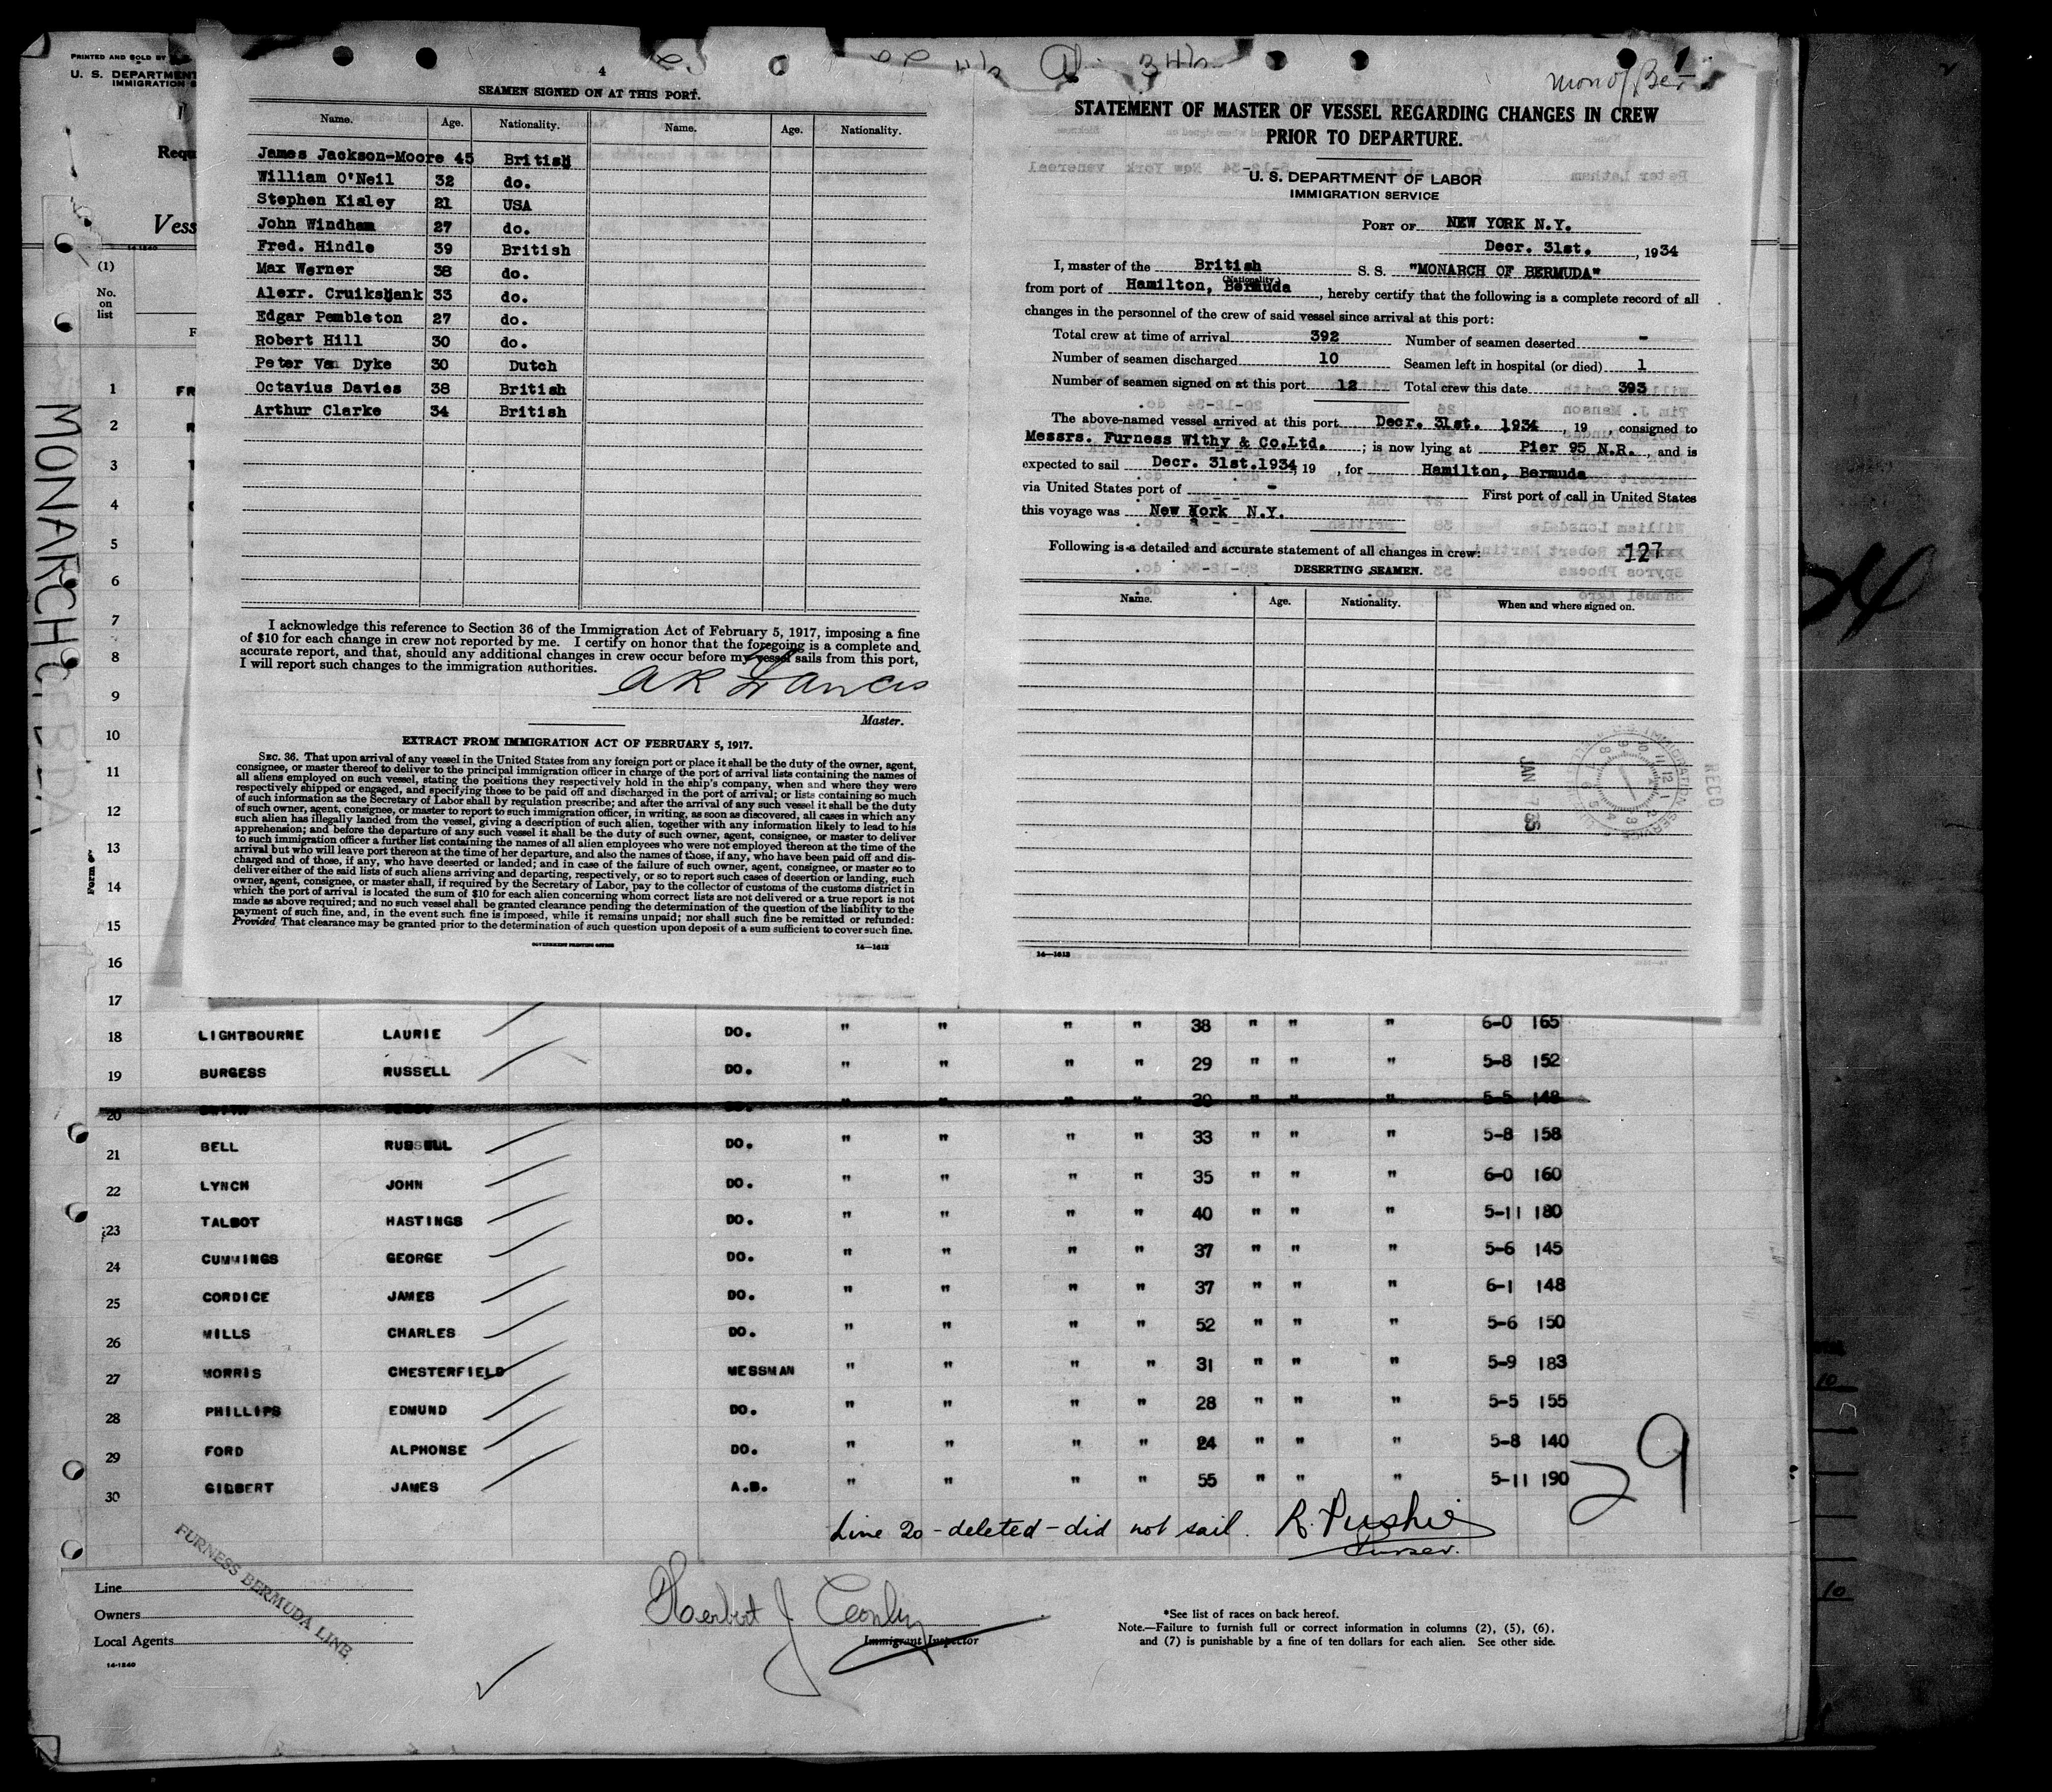 PRINTED AND SOLD BY
U. S. DEPARTMENT
IMMIGRATION S
Requ
Vess
14-1240
(1)
No.
on
list
MONARCH OF BERMUDA
4
SEAMEN SIGNED ON AT THIS PORT.
Name. Age. Nationality. Name. Age. Nationality.
James Jackson-Moore 45 British
William O'Neil 32 do.
Stephen Kisley 21 USA
John Windham 27 do.
Fred. Hindle 39 British
Max Werner 38 do.
Alexr. Cruikshank 33 do.
Edgar Pembleton 27 do.
Robert Hill 30 do.
Peter Van Dyke 30 Dutch
Octavius Davies 38 British
Arthur Clarke 34 British
I acknowledge this reference to Section 36 of the Immigration Act of February 5, 1917, imposing a fine
of $10 for each change in crew not reported by me. I certify on honor that the foregoing is a complete and
accurate report, and that, should any additional changes in crew occur before my vessel sails from this port,
I will report such changes to the immigration authorities.
Master.
EXTRACT FROM IMMIGRATION ACT OF FEBRUARY 5, 1917.
SEC. 36. That upon arrival of any vessel in the United States from any foreign port or place it shall be the duty of the owner, agent,
consignee, or master thereof to deliver to the principal immigration officer in charge of the port of arrival lists containing the names of
all aliens employed on such vessel, stating the positions they respectively hold in the ship's company, when and where they were
respectively shipped or engaged, and specifying those to be paid off and discharged in the port of arrival; or lists containing so much
of such information as the Secretary of Labor shall by regulation prescribe; and after the arrival of any such vessel it shall be the duty
of such owner, agent, consignee, or master to report to such immigration officer, in writing, as soon as discovered, all cases in which any
such alien has illegally landed from the vessel, giving a description of such alien, together with any information likely to lead to his
apprehension; and before the departure of any such vessel it shall be the duty of such owner, agent, consignee, or master to deliver
to such immigration officer a further list containing the names of all alien employees who were not employed thereon at the time of the
arrival but who will leave port thereon at the time of her departure, and also the names of those, if any, who have been paid off and dis-
charged and of those, if any, who have deserted or landed; and in case of the failure of such owner, agent, consignee, or master so to
deliver either of the said lists of such aliens arriving and departing, respectively, or so to report such cases of desertion or landing, such
owner, agent, consignee, or master shall, if required by the Secretary of Labor, pay to the collector of customs of the customs district in
which the port of arrival is located the sum of $10 for each alien concerning whom correct lists are not delivered or a true report is not
made as above required; and no such vessel shall be granted clearance pending the determination of the question of the liability to the
payment of such fine, and, in the event such fine is imposed, while it remains unpaid; nor shall such fine be remitted or refunded:
Provided That clearance may be granted prior to the determination of such question upon deposit of a sum sufficient to cover such fine.
GOVERNMENT PRINTING OFFICE 14—1613
Mon of Ber
STATEMENT OF MASTER OF VESSEL REGARDING CHANGES IN CREW
PRIOR TO DEPARTURE.
U. S. DEPARTMENT OF LABOR
IMMIGRATION SERVICE
PORT OF NEW YORK N.Y.
Decr. 31st. , 1934
I, master of the British S. S. "MONARCH OF BERMUDA"
(Nationality)
from port of Hamilton, Bermuda , hereby certify that the following is a complete record of all
changes in the personnel of the crew of said vessel since arrival at this port:
Total crew at time of arrival 392 Number of seamen deserted -
Number of seamen discharged 10 Seamen left in hospital (or died) 1
Number of seamen signed on at this port 12 Total crew this date 393
The above-named vessel arrived at this port Decr. 31st. 1934 , 19 , consigned to
Messrs. Furness Withy & Co.Ltd. ; is now lying at Pier 95 N.R. , and is
expected to sail Decr. 31st.1934, 19 , for Hamilton, Bermuda
via United States port of - First port of call in United States
this voyage was New York N.Y.
Following is a detailed and accurate statement of all changes in crew: 127
DESERTING SEAMEN.
Name. Age. Nationality. When and where signed on.
RECD
JAN 7 35
14—1613
1
2
3
4
5
6
7
8
9
10
11
12
13
14
15
16
17
18 LIGHTBOURNE LAURIE DO. " " " " 38 " " " 6-0 165
19 BURGESS RUSSELL DO. " " " " 29 " " " 5-8 152
20 " " " " " " " 5-5 148
21 BELL RUSSELL DO. " " " " 33 " " " 5-8 158
22 LYNCH JOHN DO. " " " " 35 " " " 6-0 160
23 TALBOT HASTINGS DO. " " " " 40 " " " 5-11 180
24 CUMMINGS GEORGE DO. " " " " 37 " " " 5-6 145
25 CORDICE JAMES DO. " " " " 37 " " " 6-1 148
26 MILLS CHARLES DO. " " " " 52 " " " 5-6 150
27 MORRIS CHESTERFIELD MESSMAN " " " " 31 " " " 5-9 183
28 PHILLIPS EDMUND DO. " " " " 28 " " " 5-5 155
29 FORD ALPHONSE DO. " " " " 24 " " " 5-8 140
30 GILBERT JAMES A.B. " " " " 55 " " " 5-11 190
29
Line 20 - deleted - did not sail. R. Pushie
Purser.
Line
Owners
Local Agents
FURNESS BERMUDA LINE
14-1240
Herbert J
Immigrant Inspector
*See list of races on back hereof.
Note.—Failure to furnish full or correct information in columns (2), (5), (6),
and (7) is punishable by a fine of ten dollars for each alien. See other side.
10
10